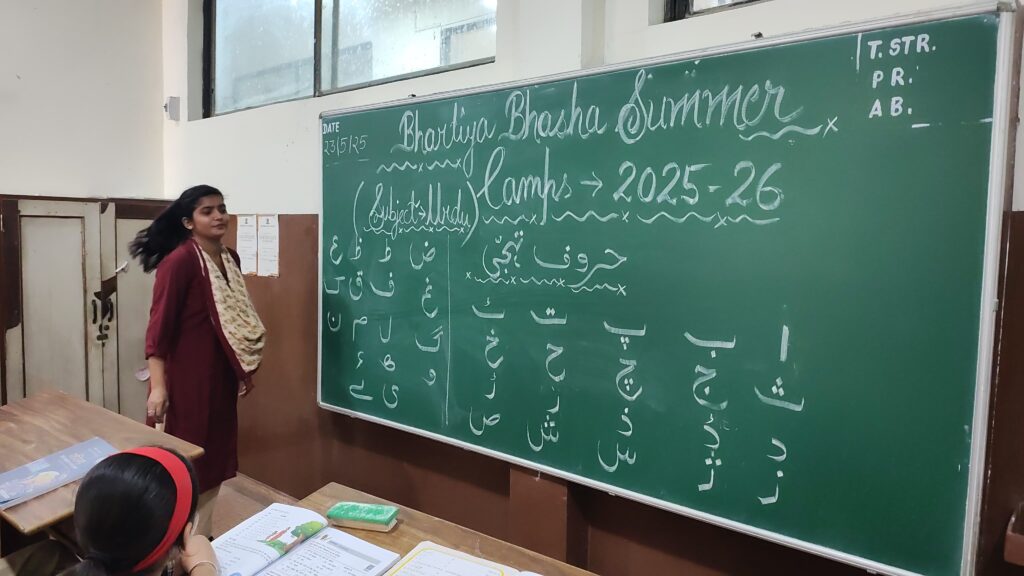 DATE
23/5/25
T. STR.
P R.
A B.
Bhartiya Bhasha Summer
Camps → 2025-26
(Subject→Urdu)
حروف تہجّی
ا ب پ ت ٹ
ث ج چ ح خ
د ڈ ذ ر ڑ
ز ژ س ش ص
ض ط ظ ع
غ ف ق ک
گ ل م ن
و ھ ء
ی ے